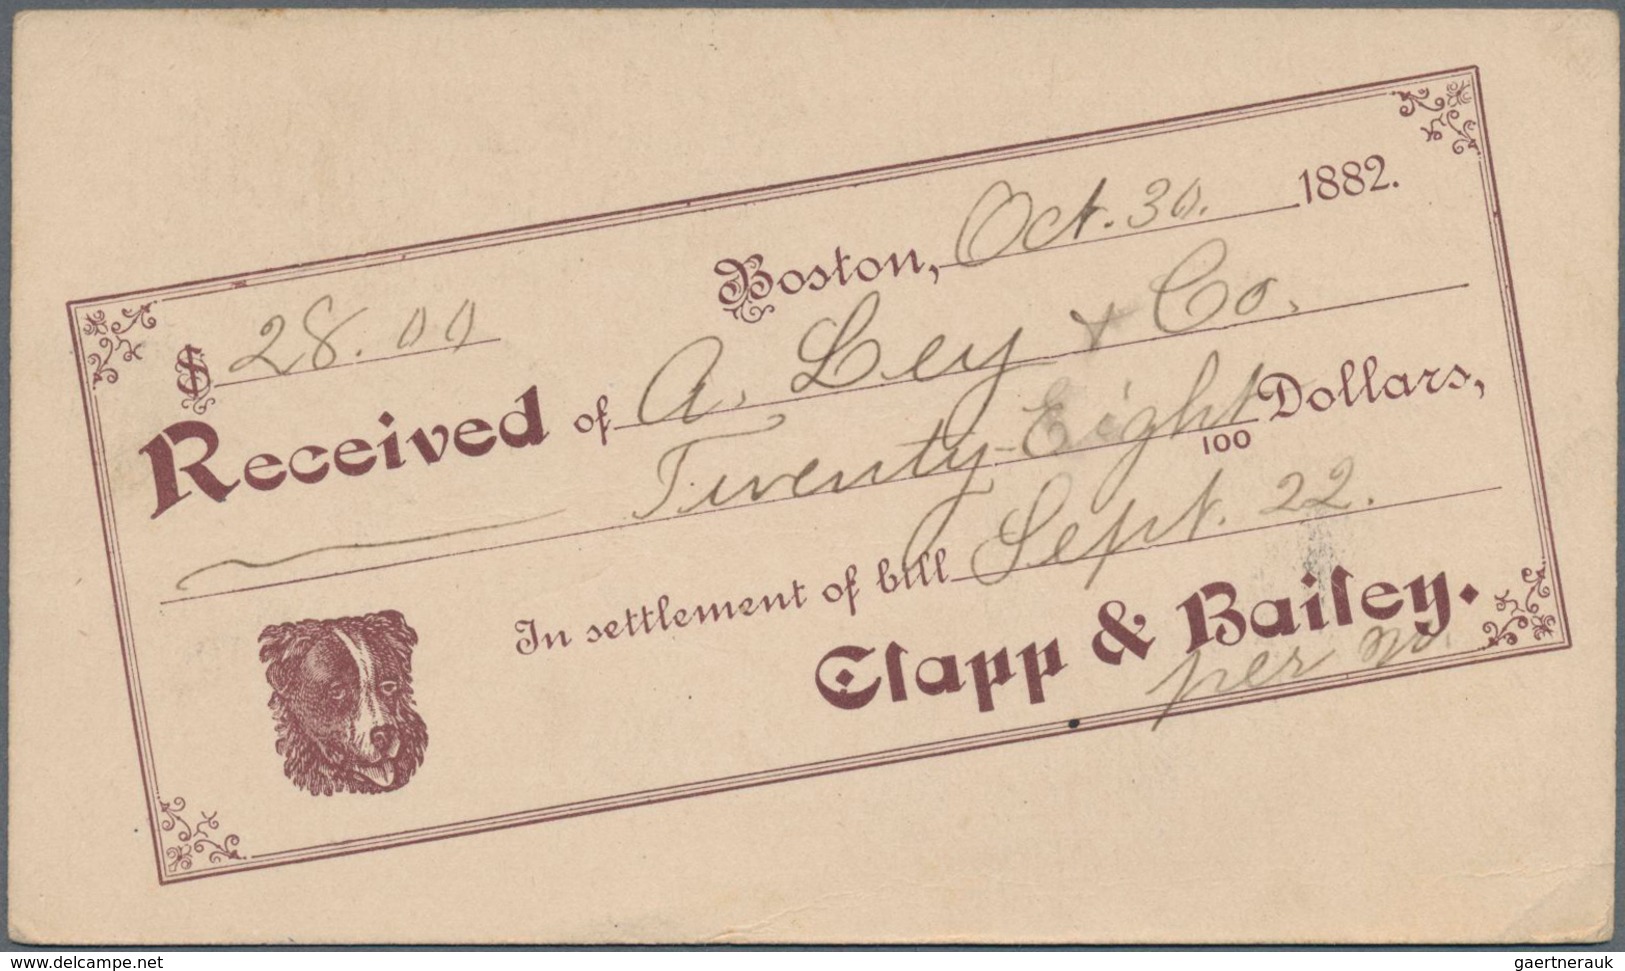 Boston, Oct. 30. 1882.
$ 28.00
Received of A. Ley & Co.
Twenty-Eight 100 Dollars,
In settlement of bill Sept. 22.
Clapp & Bailey.
per
www.delcampe.net
gaertnerauk